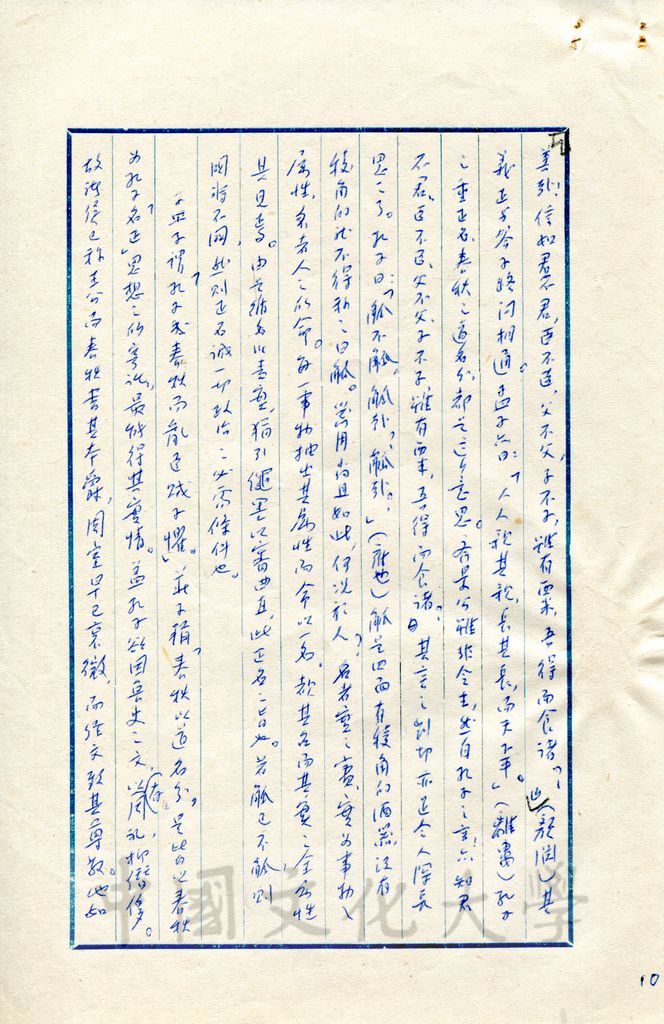 善哉！信如君不君，臣不臣，父不父，子不子，雖有粟，吾得而食諸？」（顏淵）其
義正与答子路問相通。孟子亦曰：「人人親其親，長其長，而天下平。」（離婁）孔子
之重正名，春秋之道名分，都是這个意思。齊景公雖非令主，然自孔子之言，亦知君
不君，臣不臣，父不父，子不子，雖有粟，吾得而食諸？其言之剴切亦正令人深長
思之了。孔子曰：「觚不觚，觚哉！觚哉！」（雍也）觚是四面有稜角的酒器，沒有
稜角的就不得稱之曰觚。器用尚且如此，何況於人？名者實之賓，實為事物之
屬性，名者人之所命。每一事物抽出其屬性而命以一名。故其名而其實之全屬性
具見焉。由是循名以責實，猶引繩墨以審曲直，此正名之旨也。若觚已不觚，則
國將不國，然則正名誠一切政治之必需條件也。
孟子謂「孔子成春秋而亂臣賊子懼。」莊子稱「春秋以道名分。」是皆以春秋
為孔子「正名」思想之所寄託，最能得其實情。蓋孔子欲因魯史之文，存周礼，抑僭侈。
故諸侯已稱王公而春秋書其本爵，周室早已衰微，而經文致其尊敬。此如
中國文化大學
10